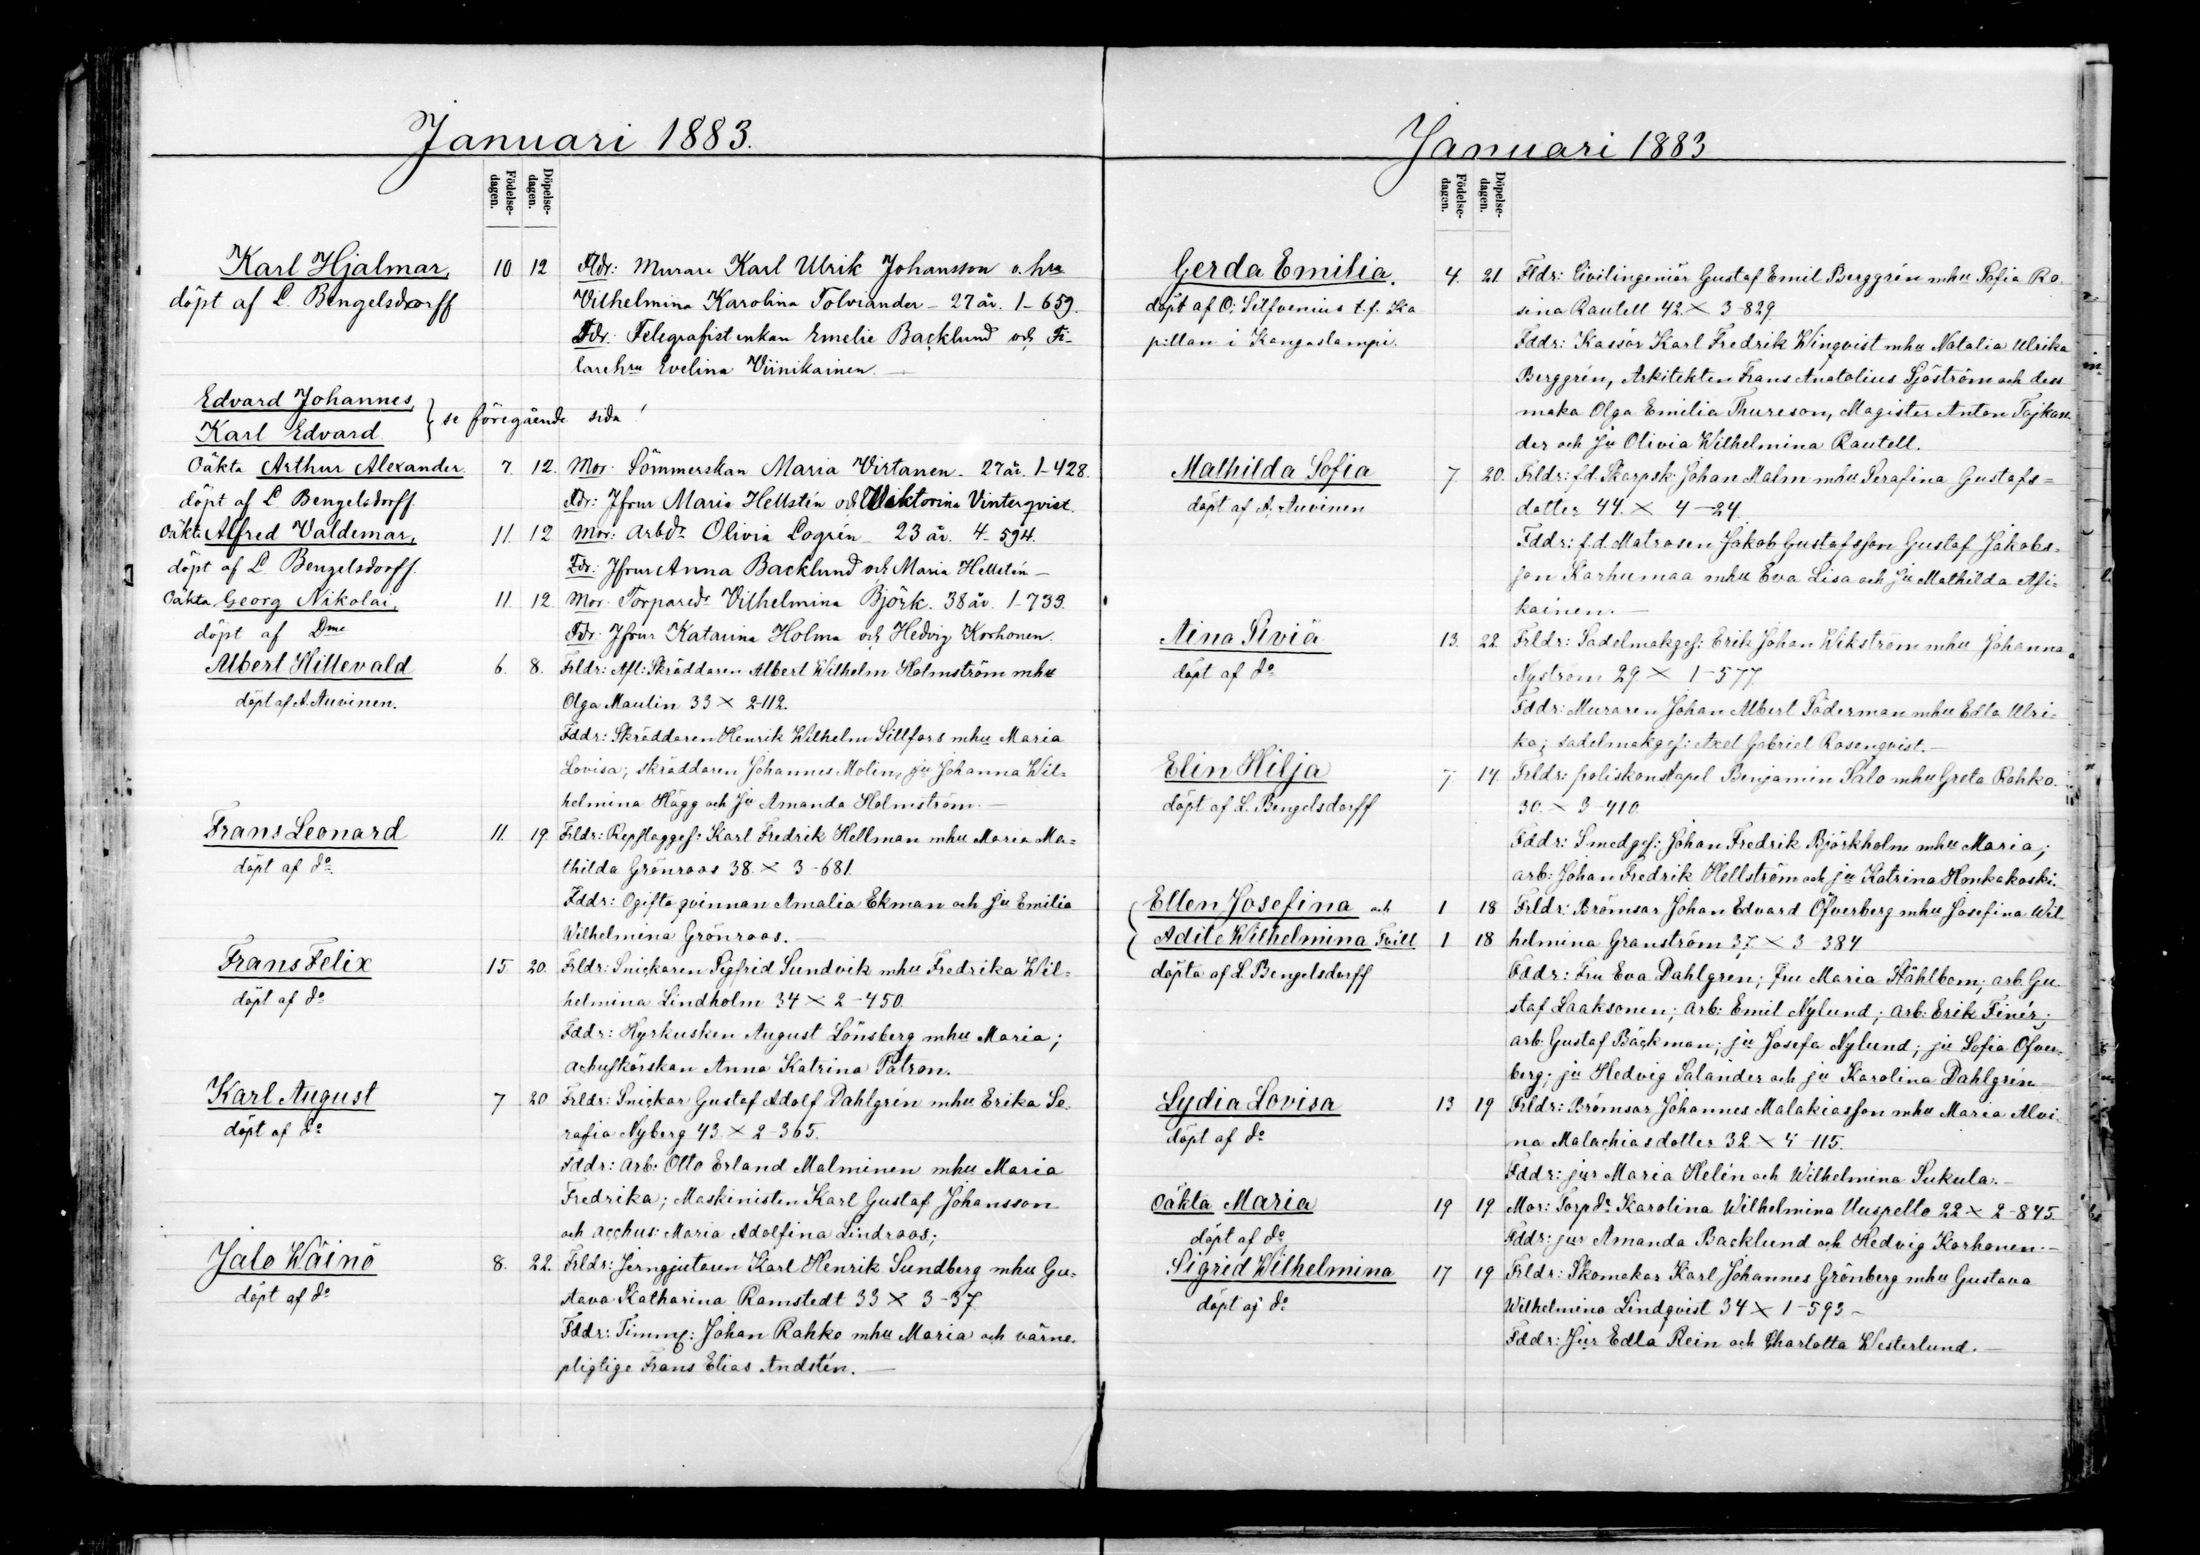 Januari 1883.
Födelse-dagen.
Döpelse-dagen.
Karl Hjalmar, 10 12 Fldr: Murare Karl Ulrik Johansson o. hru
döpt af L. Bengelsdorff Vilhelmina Karolina Tolviander - 27 år. 1-659.
Fdr: Telegrafist enkan Emelie Backlund och Fi-
larehru Evelina Viinikainen. —
Edvard Johannes,
Karl Edvard } se föregående sida!
Oäkta Arthur Alexander 7. 12. Mor: Sömmerskan Maria Virtanen. 27 år. 1-428.
döpt af L Bengelsdorff. Fdr: Jfrur Maria Hellstén och Viktorina Vinterqvist.
Oäkta Alfred Valdemar, 11. 12 Mor: Arbdr Olivia Logrén 23 år. 4-594.
döpt af L Bengelsdorff. Fdr: Jfrur Anna Backlund och Maria Hellstén —
Oäkta Georg Nikolai, 11. 12. Mor. Torparedr Vilhelmina Björk. 38 år. 1-733.
döpt af Dme Fdr: Jfrur Katarina Holma och Hedvig Korhonen.
Albert Hittevald 6. 8. Frldr: Afl: Skräddaren Albert Wilhelm Holmström mhu
döpt af A. Auvinen. Olga Maulin 33 × 2-112.
Fddr: Skräddaren Henrik Wilhelm Sillfors mhu Maria
Lovisa; skräddaren Johannes Molin, ju Johanna Wil=
helmina Hägg och Ju Amanda Holmström. —
Frans Leonard 11. 19. Frldr: Repslaggeg: Karl Fredrik Hellman mhu Maria Ma=
döpt af do thilda Grönroos 38. × 3-681.
Fddr: Ogifta qvinnan Amalia Ekman och Ju Emilia
Wilhelmina Grönroos. —
Frans Felix 15 20. Frldr: Snickaren Sigfrid Sundvik mhu Fredrika Wil=
döpt af do helmina Lindholm 34 × 2-450.
Fddr: Hyrkusken August Lönsberg mhu Maria;
Anna Katrina Patron. —
Karl August 7 20 Frldr: Snickar Gustaf Adolf Dahlgrén mhu Erika Se.
döpt af do rafia Nyberg 43 × 2-365.
Fddr: arb: Otto Erland Malminen mhu Maria
Fredrika; Maskinisten Karl Gustaf Johansson
och Maria Adolfina Lindroos;
Jalo Wäinö 8. 22. Frldr: Jerngjutaren Karl Henrik Sundberg mhu Gu=
döpt af do stava Katharina Ramstedt 33 × 3-37
Fddr: Timmg: Johan Rahko mhu Maria och värne-
pligtige Frans Elias Andstén. —
Januari 1883
Födelse-dagen.
Döpelse-dagen.
Gerda Emilia. 4. 21. Fldr: Civilingeniör Gustaf Emil Berggrén mhu Sofia Ro.
döpt af O. Silfvenius t.f. Ka sina Rautell 42 × 3-829
pellan i Kangaslampi. Fddr: Kassör Karl Fredrik Winqvist mhu Natalia Ulrika
Berggrén, Arkitekten Frans Anatolius Sjöström och dess
maka Olga Emilia Thureson, Magister Anton Tojkan-
der och Ju Olivia Wilhelmina Rautell.
Mathilda Sofia 7. 20. Frldr: f.d. Skarpsk: Johan Malm mhu Serafina Gustafs=
döpt af A. Auvinen dotter 44. × 4-24.
Fddr: f.d. Matrosen Jakob Gustafsson Gustaf Jakobs-
son Karhumaa mhu Eva Lisa och Ju Mathilda Asi-
kainen. —
Aina Siviä 13. 22. Frldr: Sadelmakges: Erik Johan Wikström mhu Johanna
döpt af do Nyström 29 × 1-577
Fddr: Muraren Johan Albert Söderman mhu Edla Ulri-
ka; sadelmakges: Axel Gabriel Rosenqvist. —
Elin Hilja 7 14 Frldr: poliskonstapel Benjamin Salo mhu Greta Rahko.
döpt af L. Bengelsdorff 30. × 3-410.
Fddr: Smedges: Johan Fredrik Björkholm mhu Maria;
arb: Johan Fredrik Hellström och ju Katrina Honkakoski.
Ellen Josefina och 1 18 Frldr: Brömsar Johan Edvard Öfverberg mhu Josefina Wil
Adile Wilhelmina Tvill 1 18 helmina Granström 37 × 3-384
döpta af L. Bengelsdorff Fddr: Fru Eva Dahlgren; fru Maria Ståhlbom; arb. Gu.
staf Laaksonen; arb: Emil Nylund; arb: Erik Finér;
arb: Gustaf Bäckman; ju Josefa Nylund; ju Sofia Öfver-
berg; ju Hedvig Salander och ju Karolina Dahlgrén —
Lydia Lovisa 13 19 Frldr: Brömsar Johannes Malakiasson mhu Maria Alvi-
döpt af do na Malachiasdotter 32 × 4-115.
Fddr: jur Maria Helén och Wilhelmina Sukula. —
Oäkta Maria 19 19 Mor: Torpdr Karolina Wilhelmina Uuspelto 22 × 2-845
döpt af do Fddr: jur Amanda Backlund och Hedvig Korhonen. —
Sigrid Wilhelmina 17 19 Frldr: Skomakar Karl Johannes Grönberg mhu Gustava
döpt af do Wilhelmina Lindqvist 34 × 1-593 —
Fddr: Jur Edla Rein och Charlotta Westerlund. —